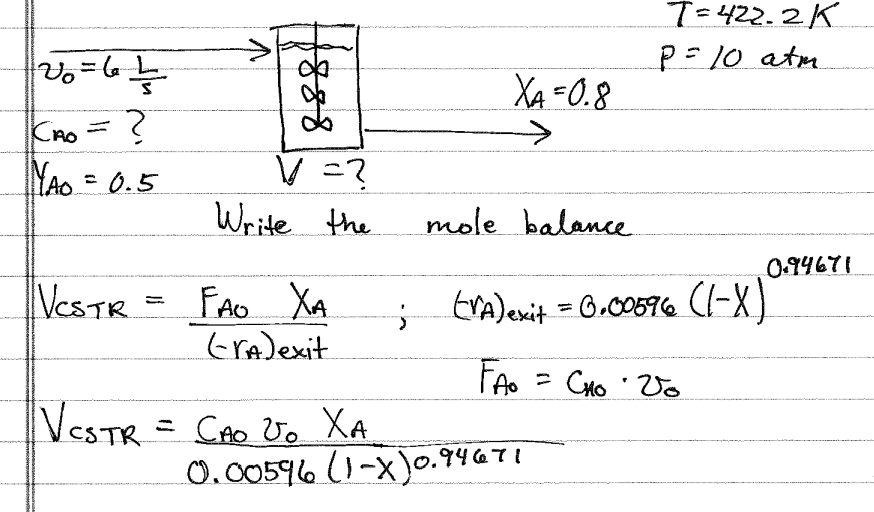 T = 422.2 K
P = 10 atm
v₀ = 6 L/s
X_A = 0.8
C_A0 = ?
Y_A0 = 0.5
V = ?
Write the mole balance
V_CSTR = F_A0 X_A / (-r_A)exit ; (-r_A)exit = 0.00596 (1-X)^0.94671
F_A0 = C_A0 · v₀
V_CSTR = C_A0 v₀ X_A / 0.00596 (1-X)^0.94671